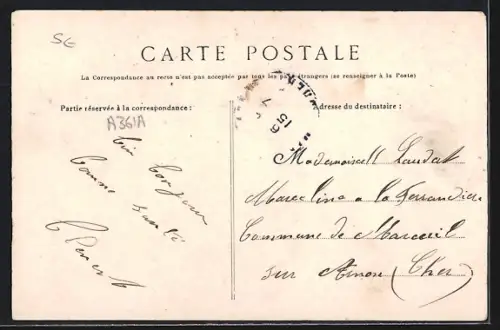 SE
CARTE POSTALE
La Correspondance au recto n'est pas acceptée par tous les pays étrangers (se renseigner à la Poste)
Partie réservée à la correspondance :
A361A
bonjour
bonne santé
Adresse du destinataire :
15
7
Mademoiselle Laudat
Marceline a la
Commune de Mareuil
sur Arnon (Cher)